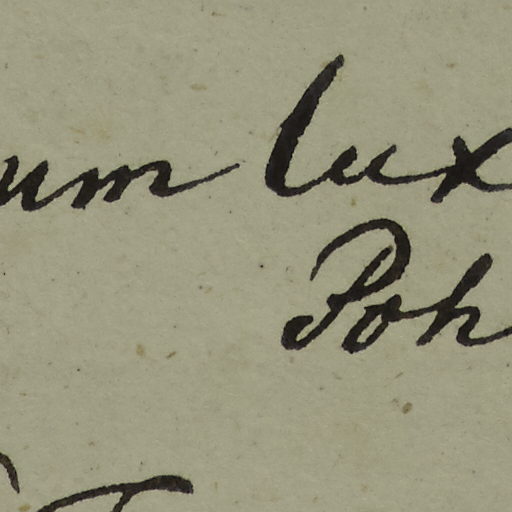 um lux
Poh